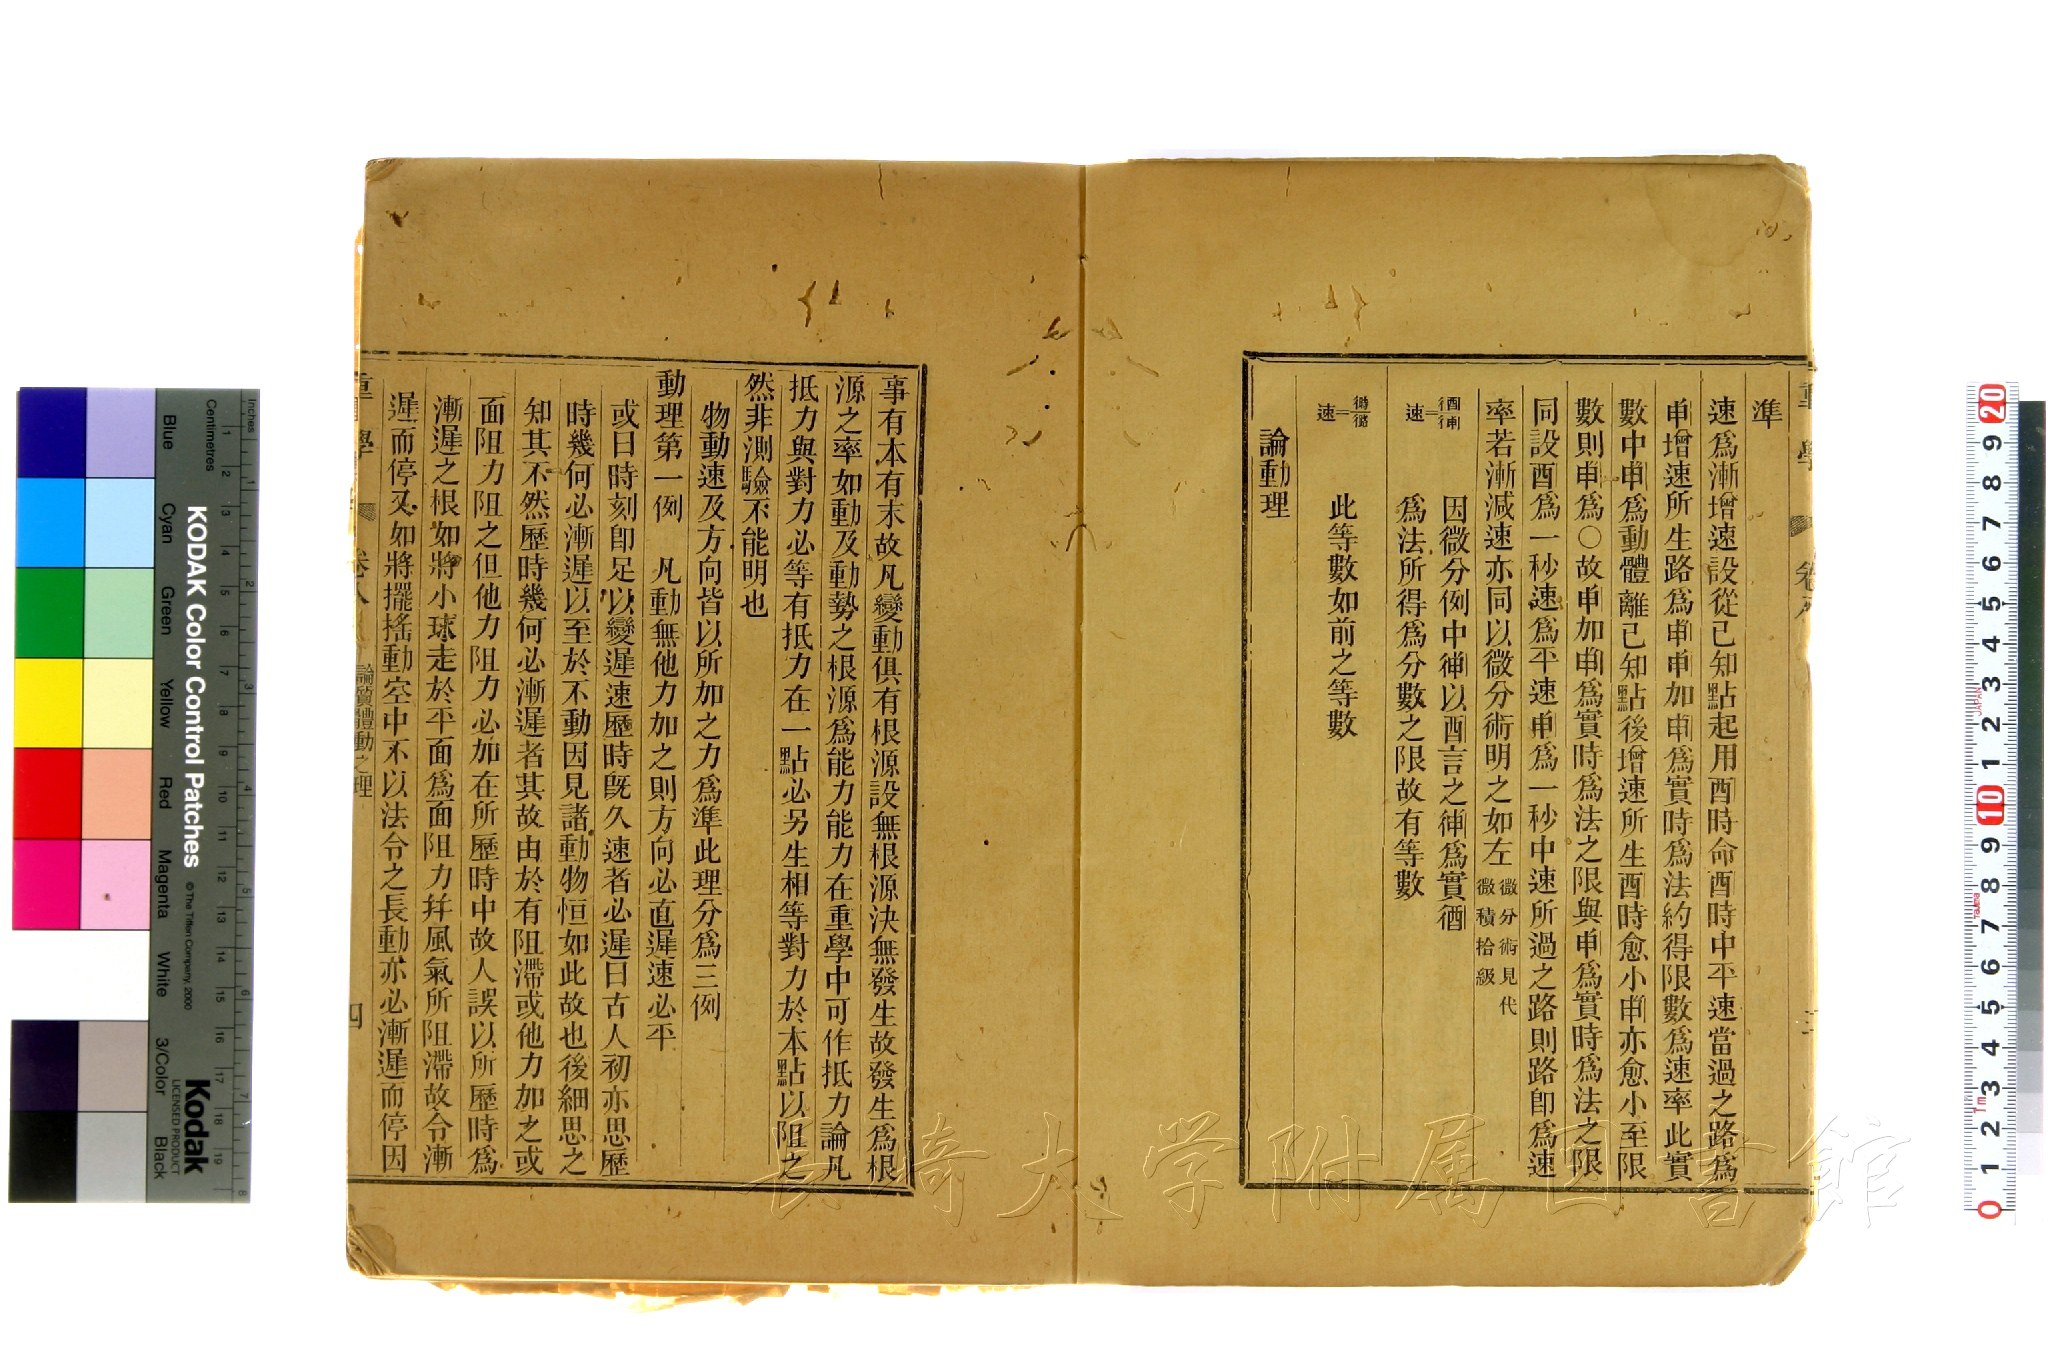 準
速爲漸增速設從已知點起用酉時命酉時中平速當過之路爲
申增速所生路爲申申加申爲實時爲法約得限數爲速率此實
數中申爲動體離已知點後增速所生酉時愈小申亦愈小至限
數則申爲○故申加申爲實時爲法之限與申爲實時爲法之限
同設酉爲一秒速爲平速申爲一秒中速所過之路則路卽爲速
率若漸減速亦同以微分術明之如左 微分術見代微積拾級
因微分例中以酉言之爲實
爲法所得爲分數之限故有等數
速
此等數如前之等數
速
論動理
事有本有末故凡變動俱有根源設無根源決無發生故發生爲根
源之率如動及動勢之根源爲能力能力在重學中可作抵力論凡
抵力與對力必等有抵力在一點必另生相等對力於本點以阻之
然非測驗不能明也
物動速及方向皆以所加之力爲準此理分爲三例
動理第一例 凡動無他力加之則方向必直遲速必平
或曰時刻卽足以變遲速歷時旣久速者必遲曰古人初亦思歷
時幾何必漸遲以至於不動因見諸動物恒如此故也後細思之
知其不然歷時幾何必漸遲者其故由於有阻滯或他力加之或
面阻力阻之但他力阻力必加在所歷時中故人誤以所歷時爲
漸遲之根如將小球走於平面爲面阻力幷風氣所阻滯故令漸
遲而停又如將擺搖動空中不以法令之長動亦必漸遲而停因
重學
卷八
論質體動之理
四
KODAK Color Control Patches
© The Tiffen Company, 2000
Kodak
LICENSED PRODUCT
Inches
Centimetres
Blue
Cyan
Green
Yellow
Red
Magenta
White
3/Color
Black
長崎大学附属図書館